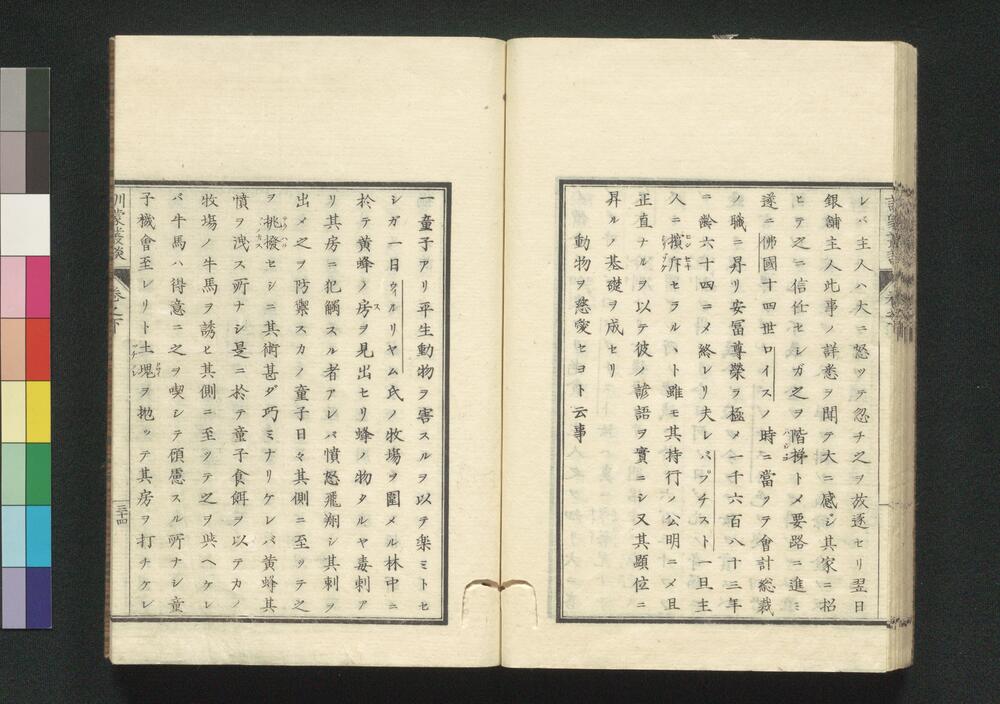 レバ主人ハ大ニ怒ッテ忽チ之ヲ放逐セリ翌日
銀舗主人此事ノ詳悉ヲ聞テ大ニ感シ其家ニ招
ヒテ之ニ信任セシガ之ヲ階梯トメ要路ニ進ミ
遂ニ佛國十四世ロイスノ時ニ當ツテ會計総裁
ノ職ニ昇リ安冨尊榮ヲ極メ一千六百八十三年
ニ齢六十四ニメ終レリ夫レバプチスト一旦主
人ニ擯斥セラルヽト雖モ其持行ノ公明ニメ且
正直ナルヲ以テ彼ノ諺語ヲ實ニシ又其顕位ニ
昇ルノ基礎ヲ成セリ
動物ヲ慈愛セヨト云事
一童子アリ平生動物ヲ害スルヲ以テ楽ミトセ
シガ一日ウィルリヤム氏ノ牧塲ヲ圍メル林中ニ
於テ黄蜂ノ房ヲ見出セリ蜂ノ物タルヤ毒刺ア
リ其房ニ犯觸スル者アレバ憤怒飛翔シ其刺ヲ
出メ之ヲ防禦スカノ童子日々其側ニ至ッテ之
ヲ挑撥セシニ其術甚ダ巧ミナリケレバ黄蜂其
憤ヲ洩ス所ナシ是ニ於テ童子食餌ヲ以テカノ
牧塲ノ牛馬ヲ誘ヒ其側ニ至ッテ之ヲ與ヘケレ
バ牛馬ハ得意ニ之ヲ喫シテ顧慮スル所ナシ童
子機會至レリト土塊ヲ抛ッテ其房ヲ打チケレ
訓蒙叢談
卷之下
三十四